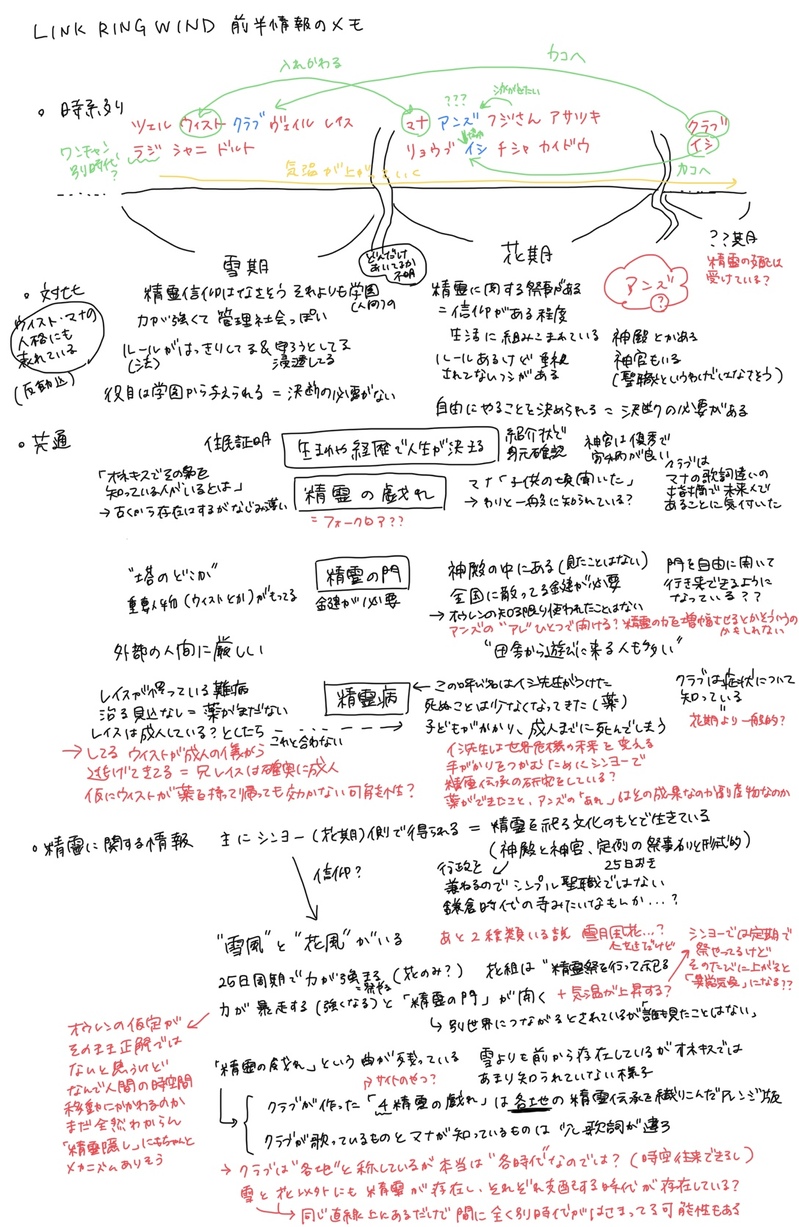 LINK RING WIND 前半情報のメモ
入れかわる
カコへ
時系列
ツェル ウィスト クラブ ヴェイル レイス
ラジ シャニ ドルト
ワンチャン
別時代
?
???
マナ アンズ フジさん アサツキ
リョウブ イシ チシャ カイドウ
クラブ
イシ
カコへ
気温が上がっていく
雪期
どんだけ
あいてるか
不明
花期
??期
精霊の支配は
受けている?
アンズ
?
対比
ウィスト・マナの
人格にも
表れている
(反動込)
精霊信仰はなさそう それよりも学園
(人間)の
力が強くて管理社会っぽい
ルールがはっきりしてる&守ろうとしてる
(法) 浸透してる
役目は学園から与えられる=決断の必要がない
精霊に関する祭事がある
=信仰がある程度
生活に組みこまれている
ルールあるけど重視
されてないフシがある
神殿とかある
神官もいる
(聖職というわけではなさそう)
自由にやることを決められる=決断の必要がある
共通
住民証明
生まれや経歴で人生が決まる
紹介状で
身元確認
神官は優秀で
家柄が良い
「オネキスでその名を
知っている人がいるとは」
→古くから存在はするがなじみ薄い
精霊の戯れ
=フォークロア??
マナ「子供の頃聞いた」
→わりと一般に知られている?
クラブは
マナの歌詞違いの
指摘で未来人で
あることに気付いた
"塔のどこか"
重要人物(ウィストとか)がもってる
精霊の門
鍵が必要
神殿の中にある(見たことはない)
全国に散ってる鍵が必要
→オウレンの知る限り使われたことはない
門を自由に開いて
行き来できるように
なっている??
アンズの"アレ"ひとつで開ける?精霊の力を増幅させるとかそういうの
かもしれない
外部の人間に厳しい
"田舎から遊びに来る人も多い"
レイスが患っている難病
治る見込なし=薬がまだない
レイスは成人している?としたら
これと合わない
→してる ウィストが成人の儀から
逃げてきてる=兄レイスは確実に成人
仮にウィストが薬を持って帰っても効かない可能性?
精霊病
←この呼び名はイシ先生がつけた
死ぬことは少なくなってきた(薬)
子どもがかかり、成人までに死んでしまう
クラブは症状について
知っている
花期より一般的?
イシ先生は世界危機の未来を変える
手がかりをつかむためにシンヨーで
精霊伝承の研究をしている?
薬ができたこと、アンズの「あれ」はその成果なのか副産物なのか
精霊に関する情報
主にシンヨー(花期)側で得られる=精霊を祀る文化のもとで生きている
(神殿と神官、定例の祭事わりと形式的)
25日おき
信仰?
行政を
兼ねるのでシンプル聖職ではない
鎌倉時代の寺みたいなもんか...?
"雪風"と"花風"がいる
あと2種類いる説 雪月風花...?
25日周期で力が強まる(花のみ?)
花組は"精霊祭を行って祀る
力が暴走する(強くなる)と「精霊の門」が開く
+気温が上昇する?
シンヨーでは定期で
祭やってるけど
そのたびに上がると
「異常気象」になる??
→別世界につながるとされているが「誰も見たことはない」
オウレンの仮定が
そのまま正解では
ないと思うけど
なんで人間の時空間
移動にかかわるのか
まだ全然わからん
「精霊隠し」にもちゃんと
メカニズムありそう
「精霊の戯れ」という曲が残っている
サイトのやつ?
雪よりも前から存在しているがオネキスでは
あまり知られていない様子
クラブが作った「4精霊の戯れ」は各土地の精霊伝承を織りこんだアレンジ版
クラブが歌っているものとマナが知っているものは歌詞が違う
→クラブは"各地"と称しているが本当は"各時代"なのでは?(時空往来できるし)
雪と花以外にも精霊が存在し、それぞれ支配する時代が存在している?
→同じ直線上にあるだけで間に全く別時代がはさまってる可能性もある